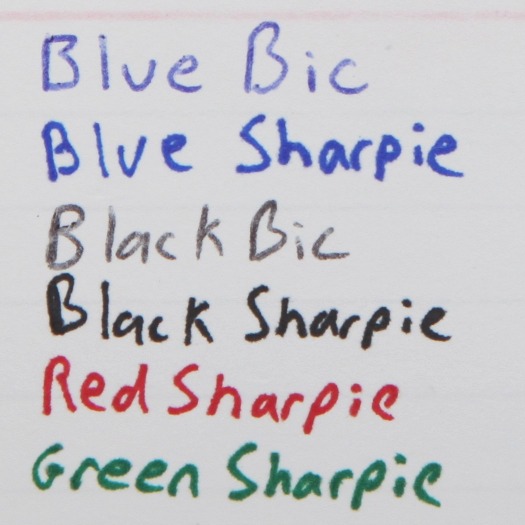 Blue Bic
Blue Sharpie
Black Bic
Black Sharpie
Red Sharpie
Green Sharpie